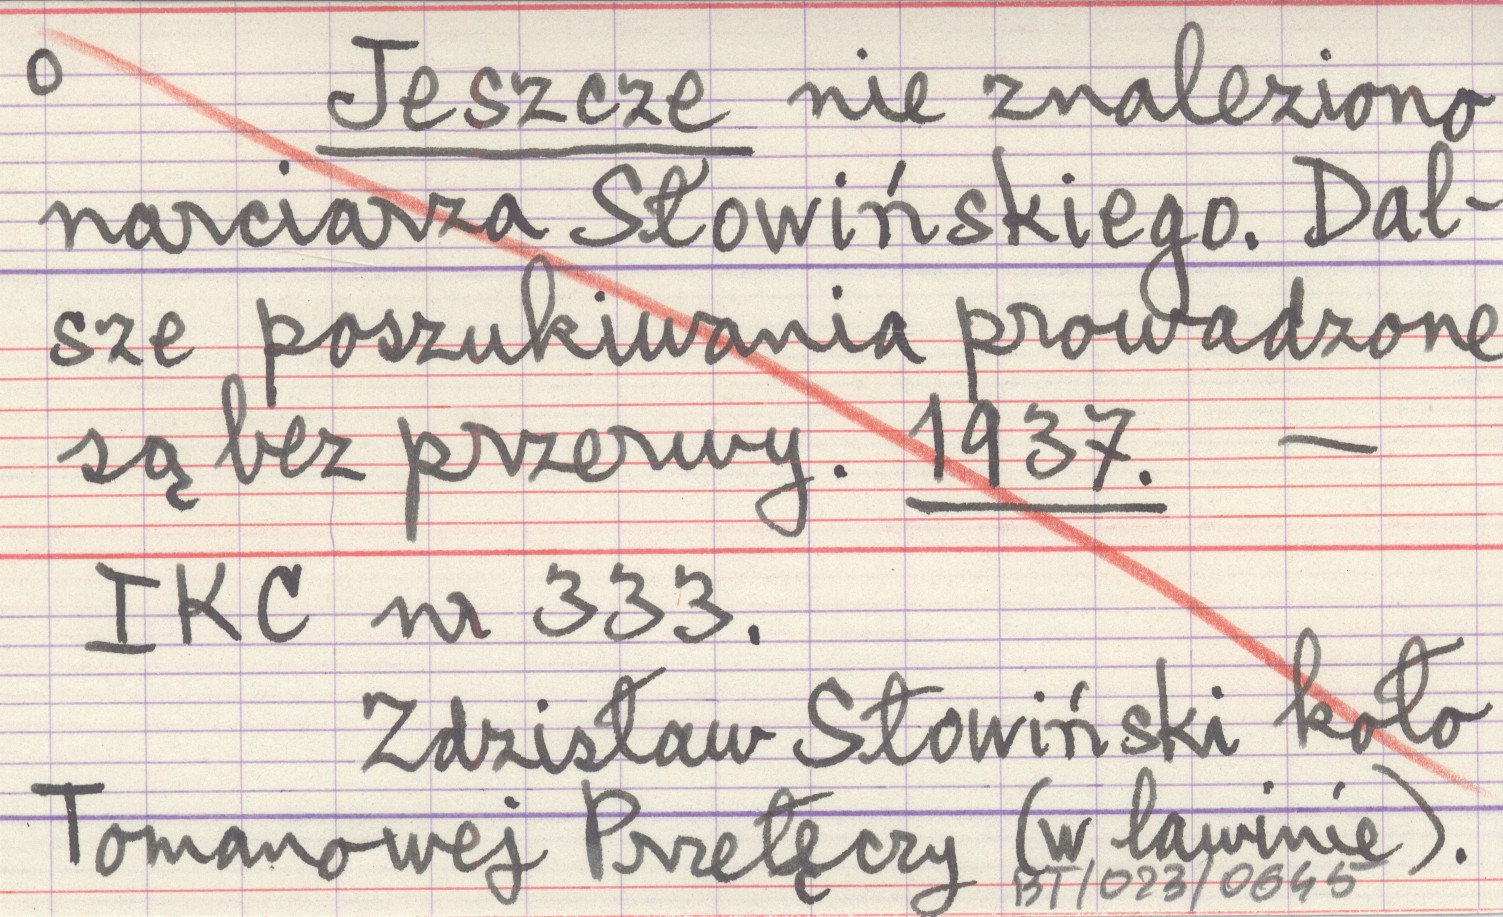 o Jeszcze nie znaleziono
narciarza Słowińskiego. Dal-
sze poszukiwania prowadzone
są bez przerwy. 1937. —
IKC nr 333.
Zdzisław Słowiński koło
Tomanowej Przełęczy (w lawinie).
BT/023/0645